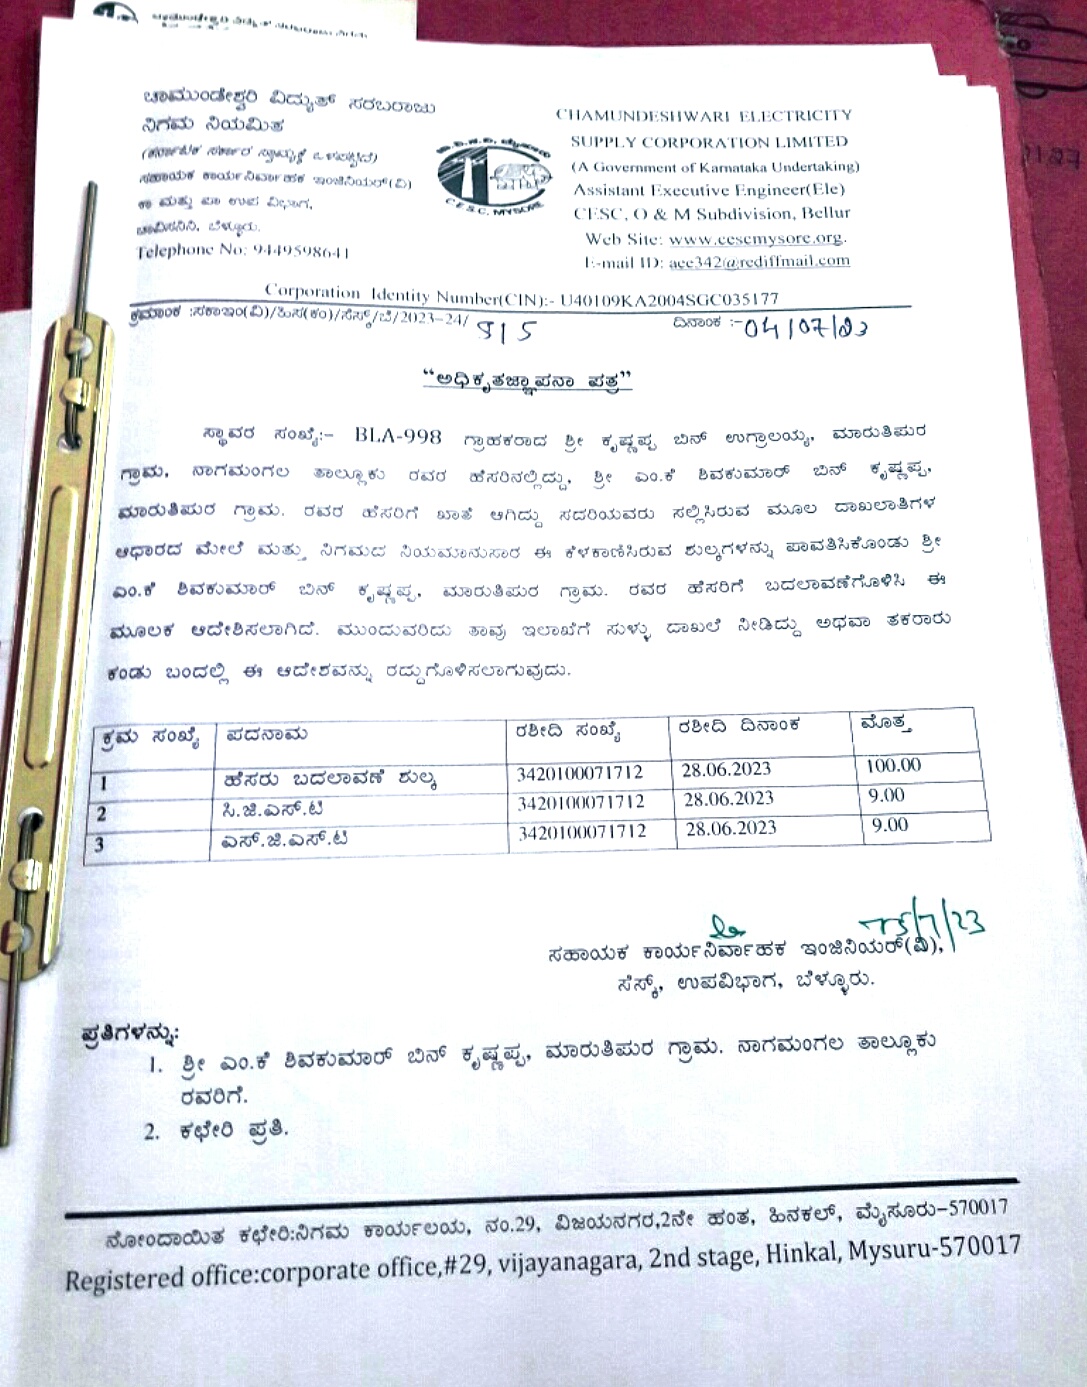 ಚಾಮುಂಡೇಶ್ವರಿ ವಿದ್ಯುತ್ ಸರಬರಾಜು
ನಿಗಮ ನಿಯಮಿತ
(ಕರ್ನಾಟಕ ಸರ್ಕಾರ ಸ್ವಾಮ್ಯಕ್ಕೆ ಒಳಪಟ್ಟಿದೆ)
ಸಹಾಯಕ ಕಾರ್ಯನಿರ್ವಾಹಕ ಇಂಜಿನಿಯರ್(ವಿ)
ಕಾ ಮತ್ತು ಪಾ ಉಪ ವಿಭಾಗ,
ಚಾವಿಸನಿನಿ, ಬೆಳ್ಳೂರು.
Telephone No: 9449598641
C.E.S.C, MYSORE
CHAMUNDESHWARI ELECTRICITY
SUPPLY CORPORATION LIMITED
(A Government of Karnataka Undertaking)
Assistant Executive Engineer(Ele)
CESC, O & M Subdivision, Bellur
Web Site: www.cescmysore.org.
E-mail ID: aee342@rediffmail.com
Corporation Identity Number(CIN):- U40109KA2004SGC035177
ಕ್ರಮಾಂಕ :ಸಕಾಇಂ(ವಿ)/ಹಿಸ(ಕಂ)/ಸೆಸ್ಕ್/ಬೆ/2023-24/ 915 ದಿನಾಂಕ :-04/07/23
“ಅಧಿಕೃತಜ್ಞಾಪನಾ ಪತ್ರ”
ಸ್ಥಾವರ ಸಂಖ್ಯೆ:- BLA-998 ಗ್ರಾಹಕರಾದ ಶ್ರೀ ಕೃಷ್ಣಪ್ಪ ಬಿನ್ ಉಗ್ರಾಲಯ್ಯ, ಮಾರುತಿಪುರ
ಗ್ರಾಮ, ನಾಗಮಂಗಲ ತಾಲ್ಲೂಕು ರವರ ಹೆಸರಿನಲ್ಲಿದ್ದು, ಶ್ರೀ ಎಂ.ಕೆ ಶಿವಕುಮಾರ್ ಬಿನ್ ಕೃಷ್ಣಪ್ಪ,
ಮಾರುತಿಪುರ ಗ್ರಾಮ. ರವರ ಹೆಸರಿಗೆ ಖಾತೆ ಆಗಿದ್ದು ಸದರಿಯವರು ಸಲ್ಲಿಸಿರುವ ಮೂಲ ದಾಖಲಾತಿಗಳ
ಆಧಾರದ ಮೇಲೆ ಮತ್ತು ನಿಗಮದ ನಿಯಮಾನುಸಾರ ಈ ಕೆಳಕಾಣಿಸಿರುವ ಶುಲ್ಕಗಳನ್ನು ಪಾವತಿಸಿಕೊಂಡು ಶ್ರೀ
ಎಂ.ಕೆ ಶಿವಕುಮಾರ್ ಬಿನ್ ಕೃಷ್ಣಪ್ಪ, ಮಾರುತಿಪುರ ಗ್ರಾಮ. ರವರ ಹೆಸರಿಗೆ ಬದಲಾವಣೆಗೊಳಿಸಿ ಈ
ಮೂಲಕ ಆದೇಶಿಸಲಾಗಿದೆ. ಮುಂದುವರಿದು ತಾವು ಇಲಾಖೆಗೆ ಸುಳ್ಳು ದಾಖಲೆ ನೀಡಿದ್ದು ಅಥವಾ ತಕರಾರು
ಕಂಡು ಬಂದಲ್ಲಿ ಈ ಆದೇಶವನ್ನು ರದ್ದುಗೊಳಿಸಲಾಗುವುದು.
ಕ್ರಮ ಸಂಖ್ಯೆ ಪದನಾಮ ರಶೀದಿ ಸಂಖ್ಯೆ ರಶೀದಿ ದಿನಾಂಕ ಮೊತ್ತ
1 ಹೆಸರು ಬದಲಾವಣೆ ಶುಲ್ಕ 3420100071712 28.06.2023 100.00
2 ಸಿ.ಜಿ.ಎಸ್.ಟಿ 3420100071712 28.06.2023 9.00
3 ಎಸ್.ಜಿ.ಎಸ್.ಟಿ 3420100071712 28.06.2023 9.00
ಸಹಾಯಕ ಕಾರ್ಯನಿರ್ವಾಹಕ ಇಂಜಿನಿಯರ್(ವಿ),
ಸೆಸ್ಕ್, ಉಪವಿಭಾಗ, ಬೆಳ್ಳೂರು.
ಪ್ರತಿಗಳನ್ನು:
1. ಶ್ರೀ ಎಂ.ಕೆ ಶಿವಕುಮಾರ್ ಬಿನ್ ಕೃಷ್ಣಪ್ಪ, ಮಾರುತಿಪುರ ಗ್ರಾಮ. ನಾಗಮಂಗಲ ತಾಲ್ಲೂಕು
ರವರಿಗೆ.
2. ಕಛೇರಿ ಪ್ರತಿ.
ನೋಂದಾಯಿತ ಕಛೇರಿ:ನಿಗಮ ಕಾರ್ಯಲಯ, ನಂ.29, ವಿಜಯನಗರ,2ನೇ ಹಂತ, ಹಿನಕಲ್, ಮೈಸೂರು-570017
Registered office:corporate office,#29, vijayanagara, 2nd stage, Hinkal, Mysuru-570017